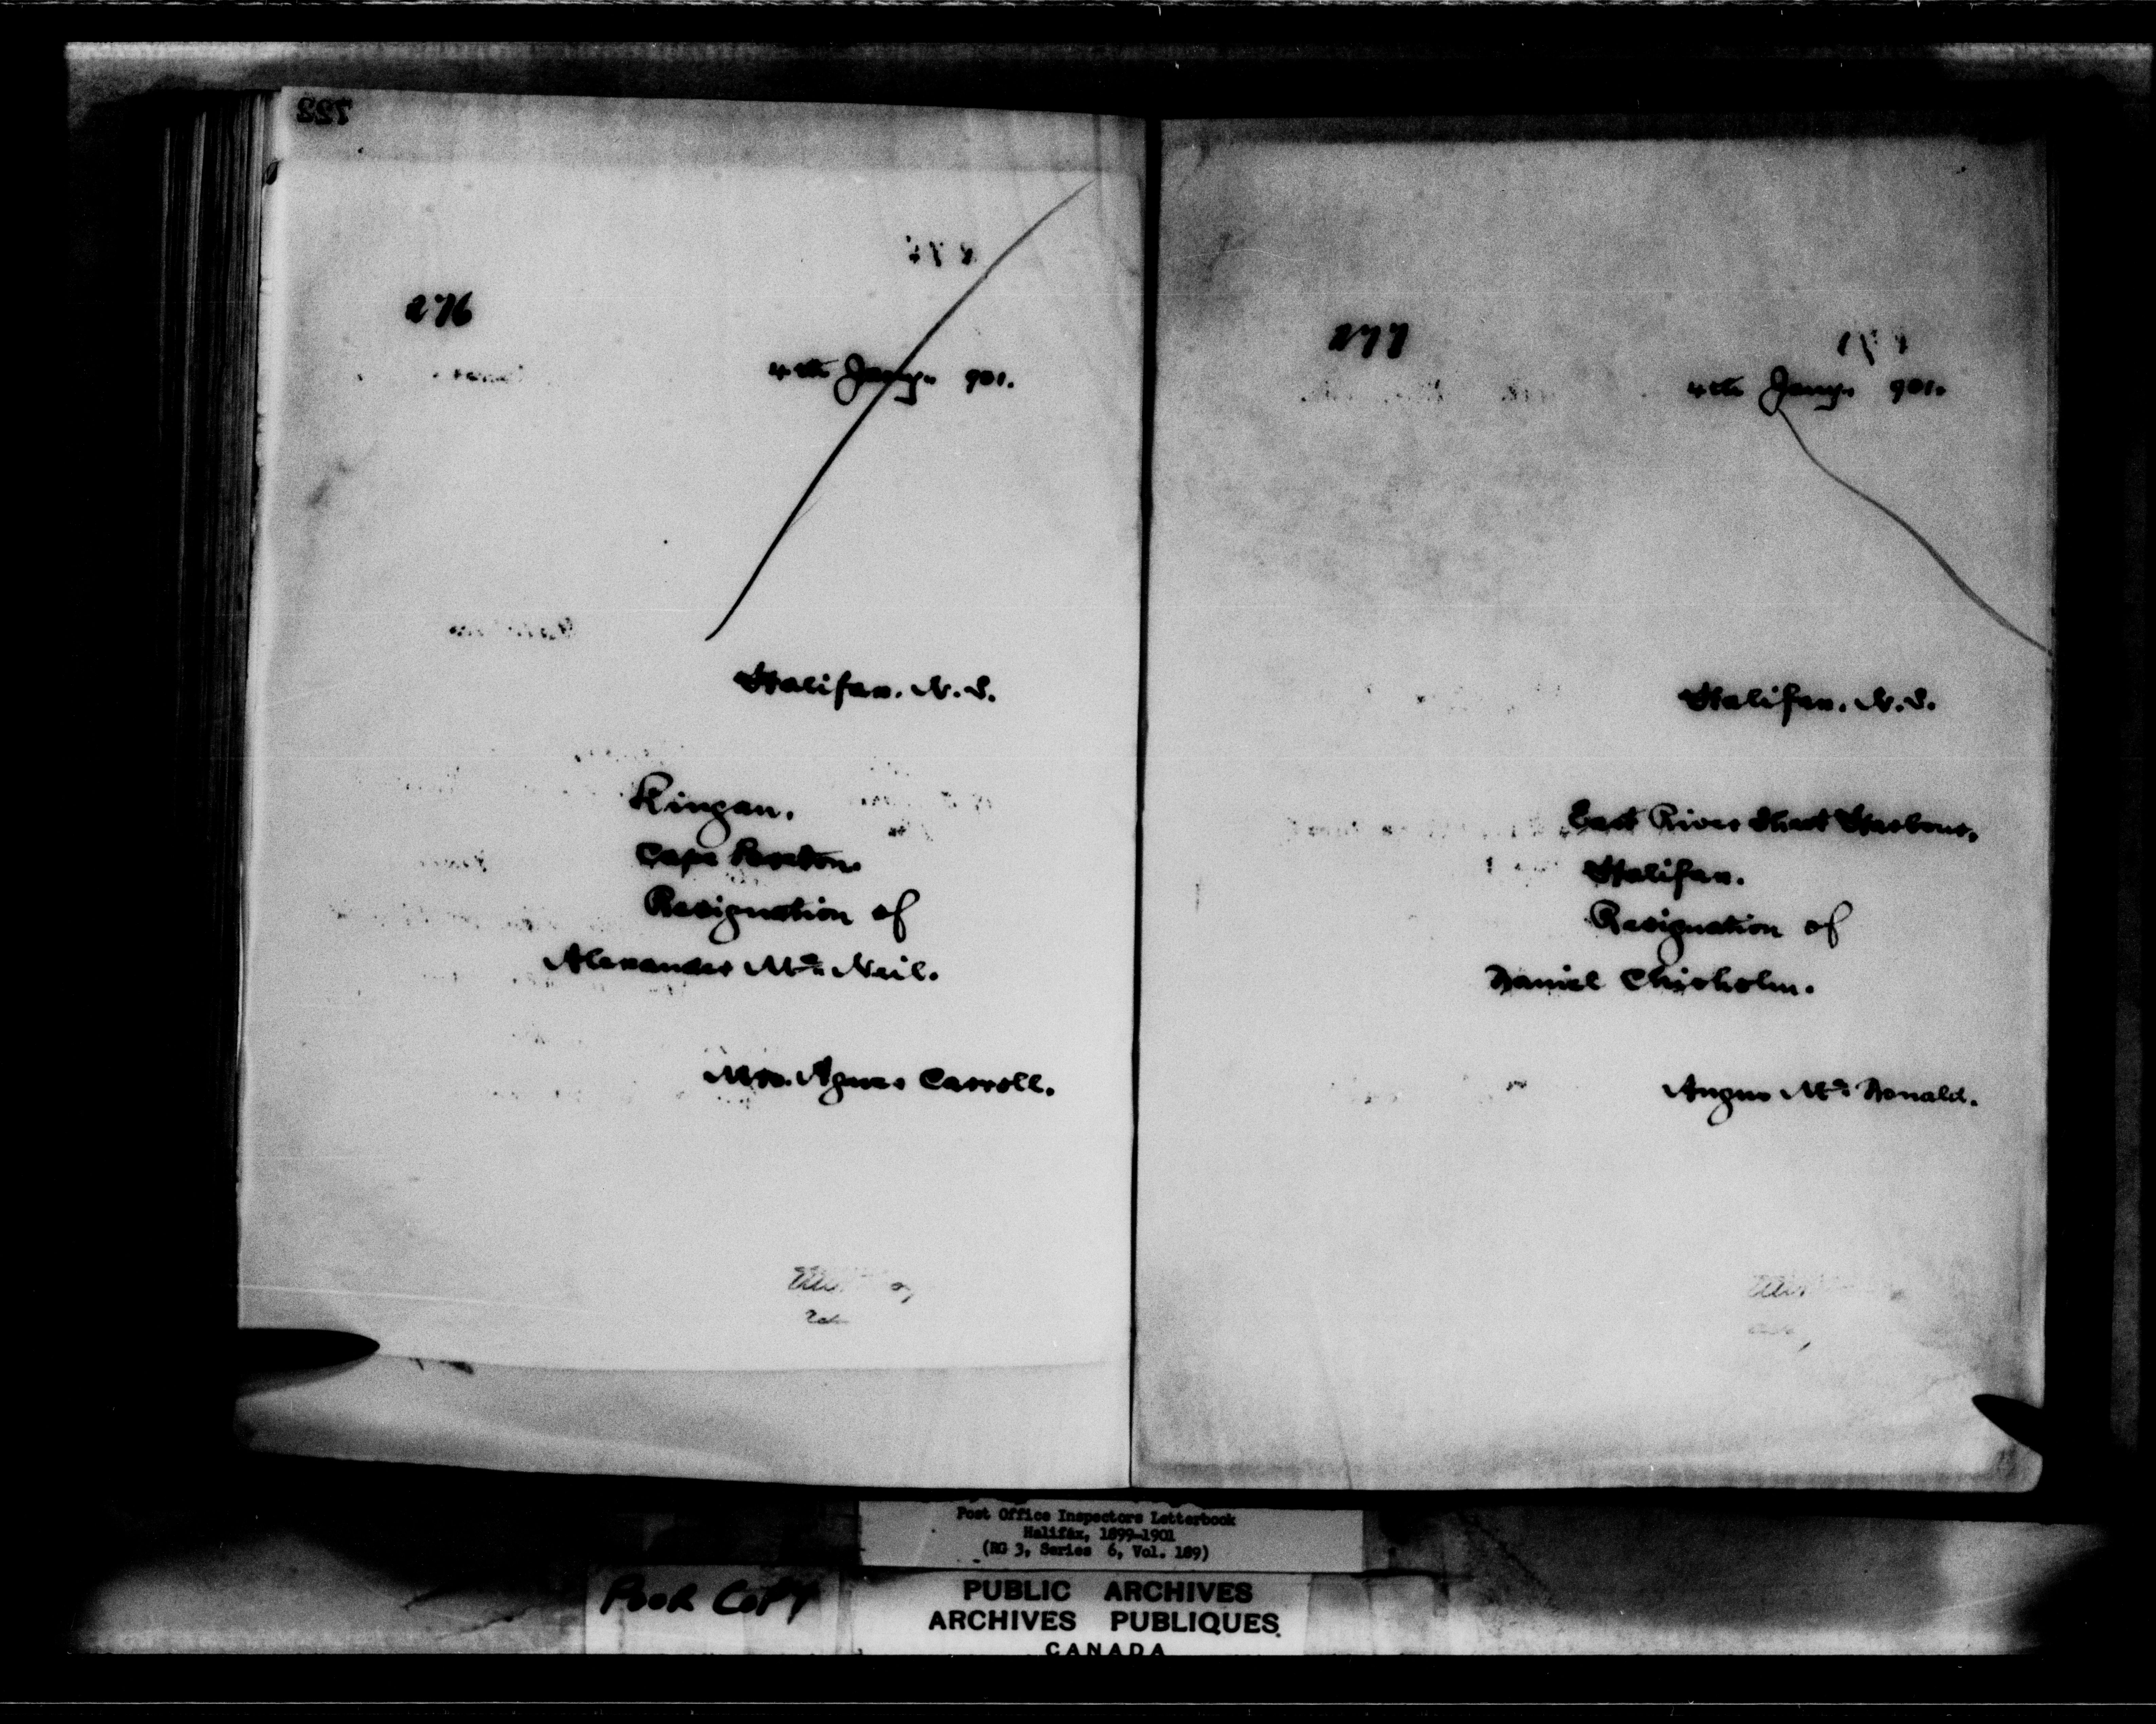 276
4th Jany. 901.
Halifax. N.S.
Kingan.
Cape Breton.
Resignation of
Alexander Mc. Neil.
Mrs. Agnes Carroll.
277
4th Jany. 901.
Halifax. N.S.
East River Sheet Harbour.
Halifax.
Resignation of
Daniel Chisholm.
Angus Mc. Donald.
Post Office Inspectors Letterbook
Halifax, 1899-1901
(RG 3, Series 6, Vol. 189)
POOR COPY
PUBLIC ARCHIVES
ARCHIVES PUBLIQUES
CANADA